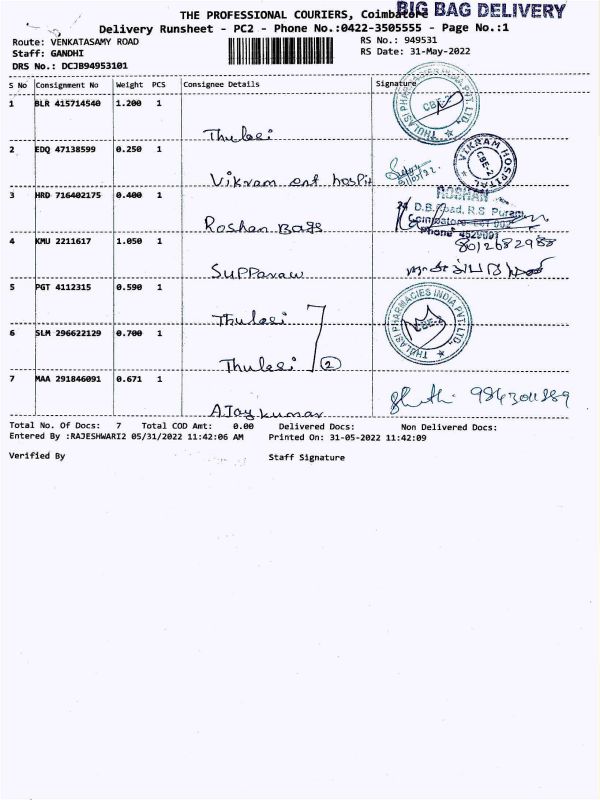 THE PROFESSIONAL COURIERS, Coimbatore
BIG BAG DELIVERY
Delivery Runsheet - PC2 - Phone No.:0422-3505555 - Page No.:1
Route: VENKATASAMY ROAD
RS No.: 949531
Staff: GANDHI
RS Date: 31-May-2022
DRS No.: DCJB94953101
S No Consignment No Weight PCS Consignee Details Signature
1 BLR 415714540 1.200 1
THULASI PHARMACIES INDIA PVT. LTD.
CBE-2
Thulasi
2 EDQ 47138599 0.250 1
VIKRAM HOSPITAL
CBE-2
Vikram ent hospit
3 HRD 716402175 0.400 1
ROSHAN
D.B.Road, R.S. Puram
Coimbatore - 641 002
Phone 4529001
Roshan BAGS
4 KMU 2211617 1.050 1
8012682988
SUPParaw
5 PGT 4112315 0.590 1
THULASI PHARMACIES INDIA PVT. LTD.
CBE-2
Thulasi
6 SLM 296622129 0.700 1
Thulasi 2
7 MAA 291846091 0.671 1
AJay kumar
Total No. Of Docs: 7 Total COD Amt: 0.00 Delivered Docs: Non Delivered Docs:
Entered By :RAJESHWARI2 05/31/2022 11:42:06 AM Printed On: 31-05-2022 11:42:09
Verified By Staff Signature